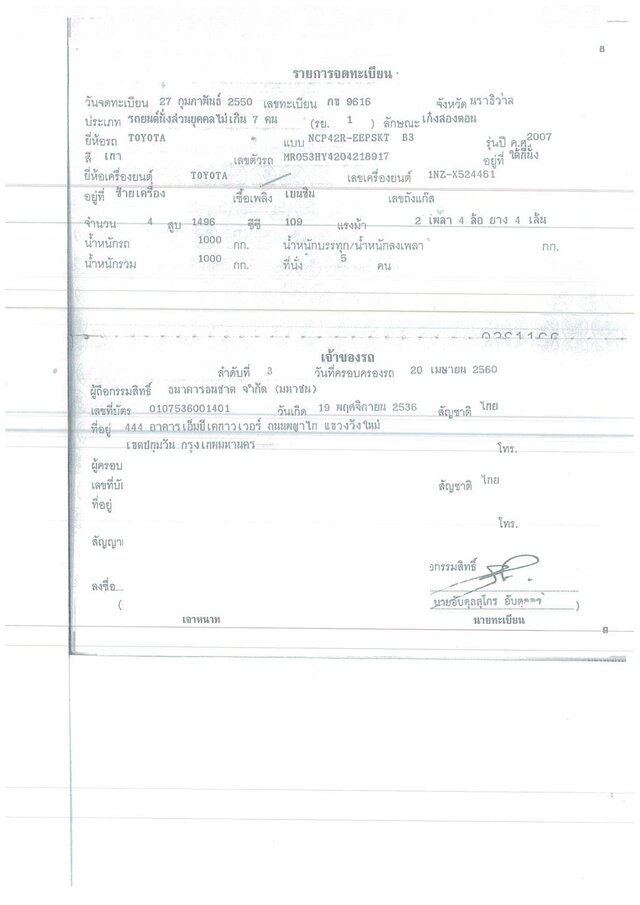 8
รายการจดทะเบียน
วันจดทะเบียน 27 กุมภาพันธ์ 2550 เลขทะเบียน กข 9616 จังหวัด นราธิวาส
ประเภท รถยนต์นั่งส่วนบุคคลไม่เกิน 7 คน (รย. 1 ) ลักษณะ เก๋งสองตอน
ยี่ห้อรถ TOYOTA แบบ NCP42R-EEPSKT B3 รุ่นปี ค.ศ. 2007
สี เทา เลขตัวรถ MR053HY4204218917 อยู่ที่ ใต้ที่นั่ง
ยี่ห้อเครื่องยนต์ TOYOTA เลขเครื่องยนต์ 1NZ-X524461
อยู่ที่ ซ้ายเครื่อง เชื้อเพลิง เบนซิน เลขถังแก๊ส
จำนวน 4 สูบ 1496 ซีซี 109 แรงม้า 2 เพลา 4 ล้อ ยาง 4 เส้น
น้ำหนักรถ 1000 กก. น้ำหนักบรรทุก/น้ำหนักลงเพลา กก.
น้ำหนักรวม 1000 กก. ที่นั่ง 5 คน
เจ้าของรถ
ลำดับที่ 3 วันที่ครอบครองรถ 20 เมษายน 2560
ผู้ถือกรรมสิทธิ์ ธนาคารธนชาต จำกัด (มหาชน)
เลขที่บัตร 0107536001401 วันเกิด 19 พฤศจิกายน 2536 สัญชาติ ไทย
ที่อยู่ 444 อาคารเอ็มบีเคทาวเวอร์ ถนนพญาไท แขวงวังใหม่
เขตปทุมวัน กรุงเทพมหานคร โทร.
ผู้ครอบ
เลขที่บั สัญชาติ ไทย
ที่อยู่
โทร.
สัญญา
กรรมสิทธิ์
ลงชื่อ
( )
เจ้าหน้าที่ นายทะเบียน
9